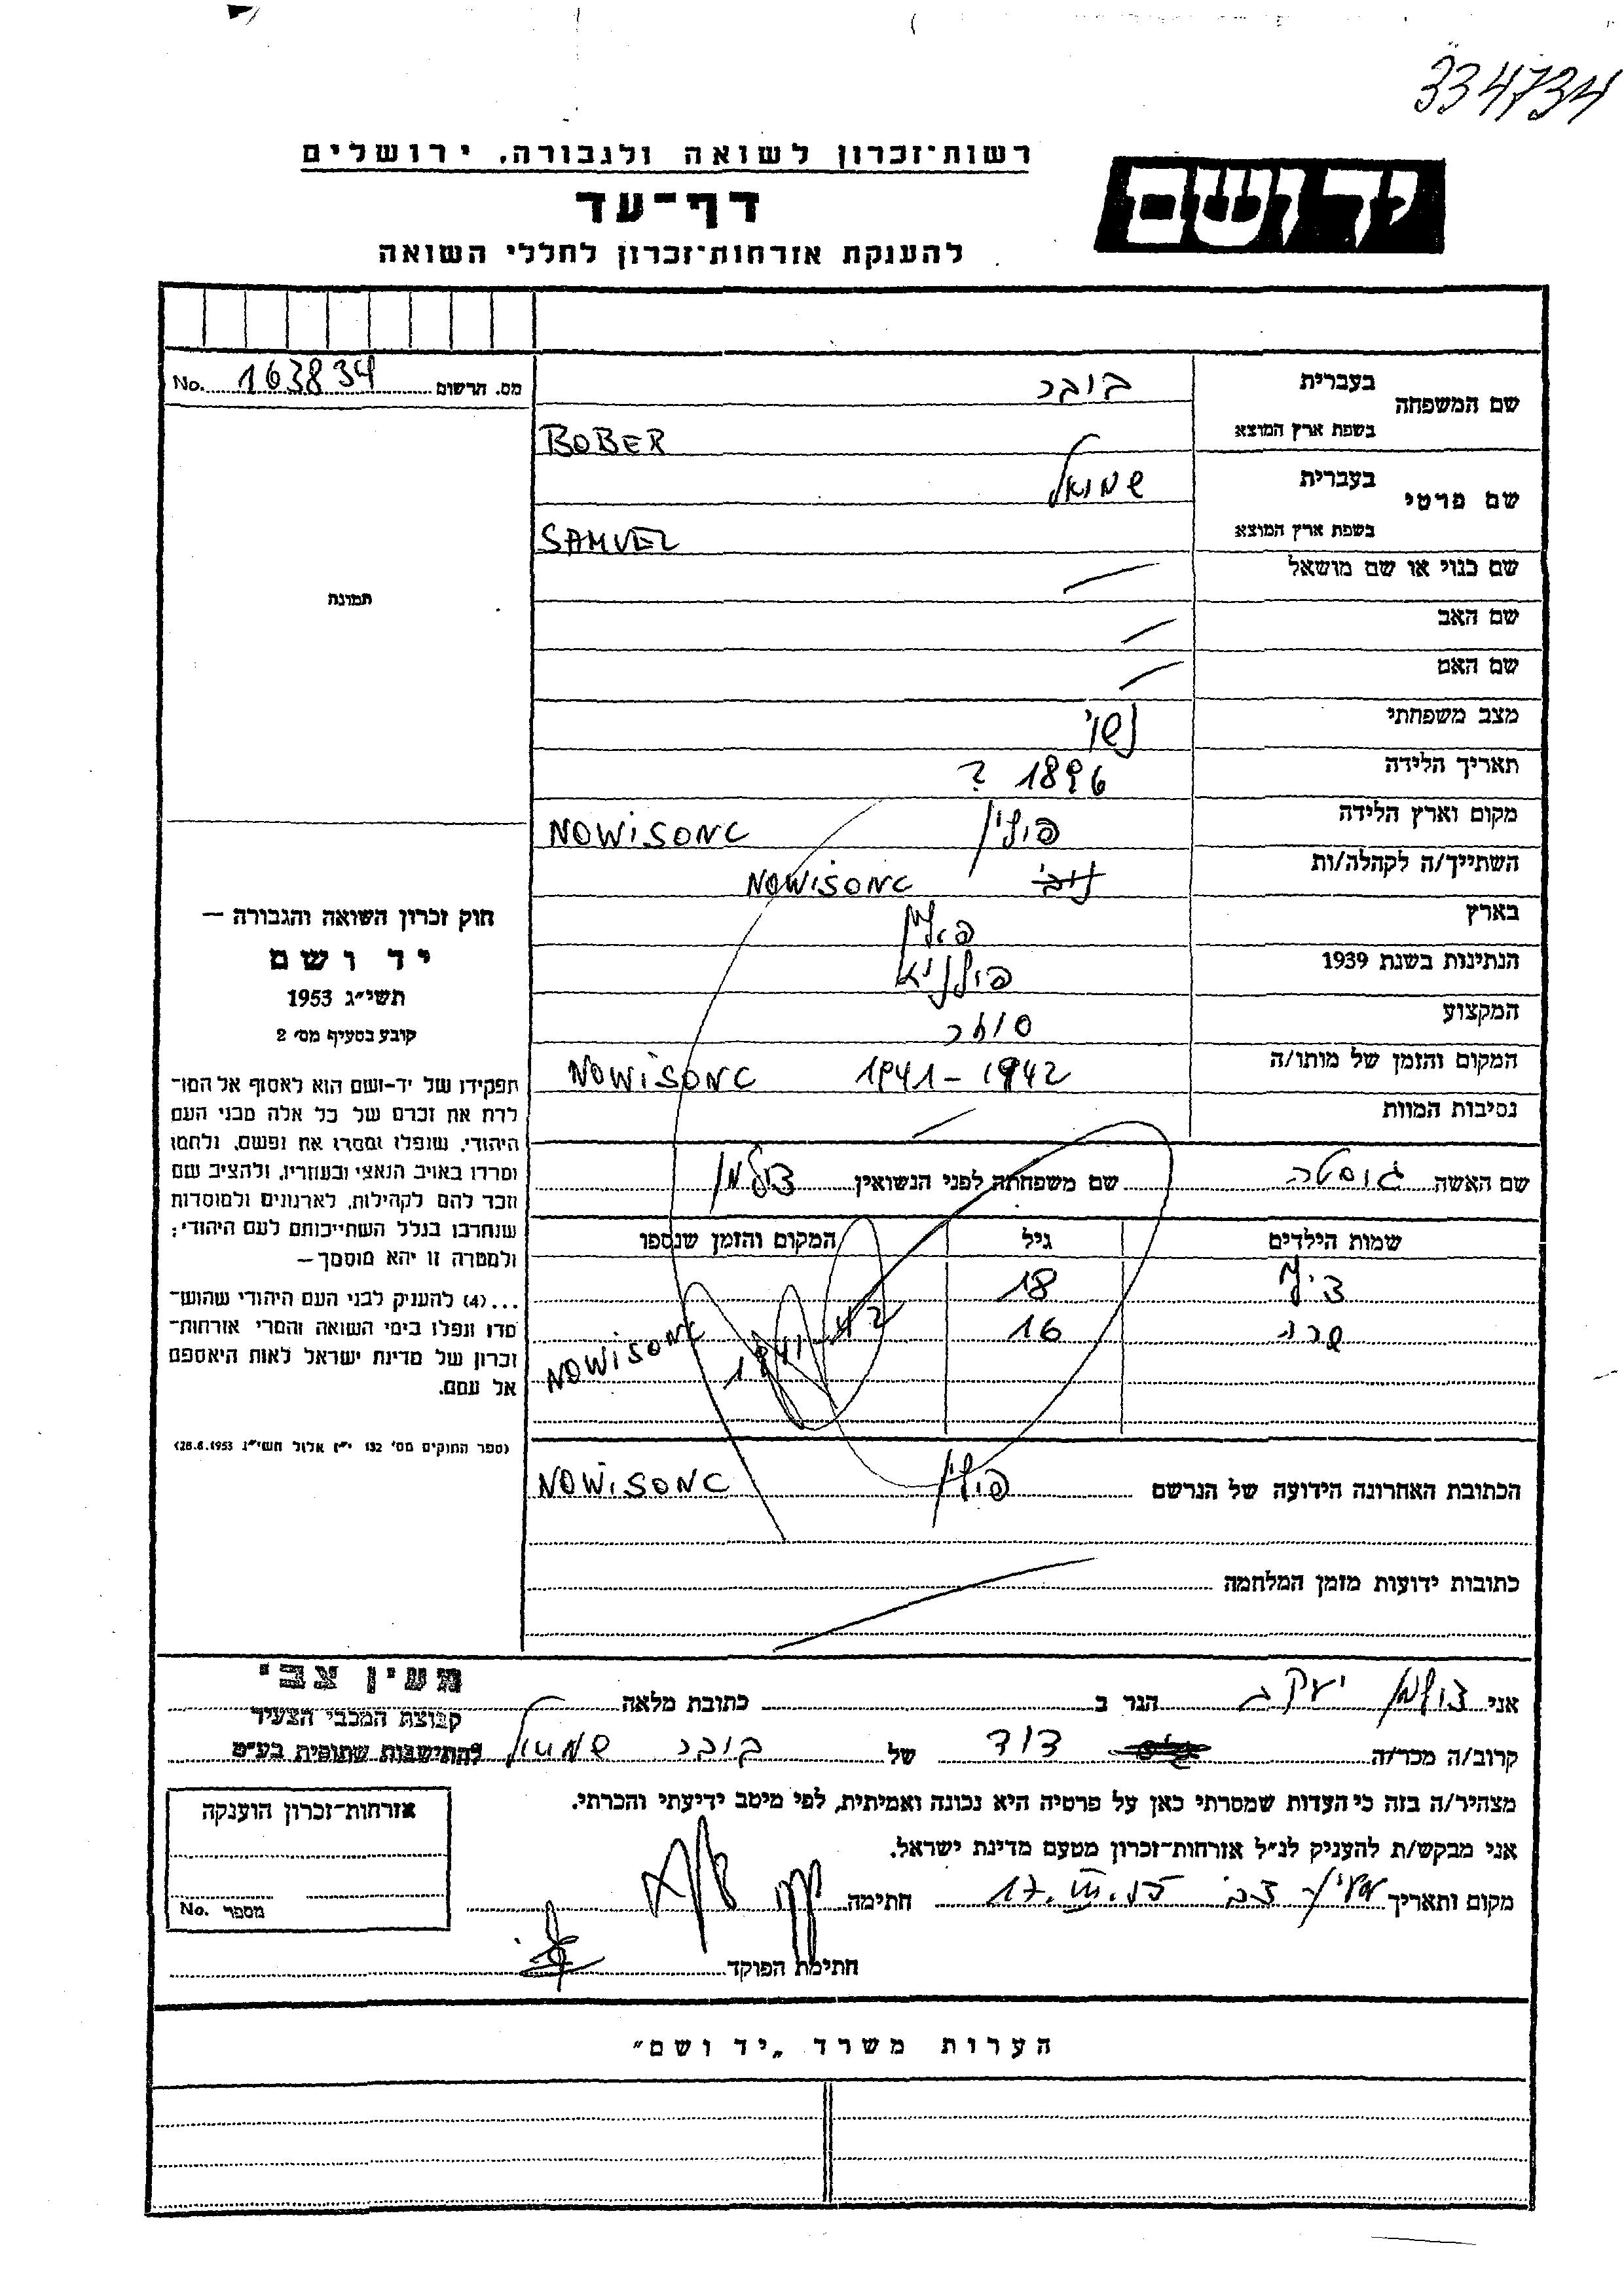 334734
רשות-זכרון לשואה ולגבורה, ירושלים
יד ושם
דף-עד
להענקת אזרחות-זכרון לחללי השואה
מס. הרשום 163834 No.
תמונה
חוק זכרון השואה והגבורה —
יד ושם
תשי״ג 1953
קובע בסעיף מס׳ 2
תפקידו של יד-ושם הוא לאסוף אל המו־
לדת את זכרם של כל אלה מבני העם
היהודי, שנפלו ומסרו את נפשם, נלחמו
ומרדו באויב הנאצי ובעוזריו, ולהציב שם
וזכר להם לקהילות, לארגונים ולמוסדות
שנחרבו בגלל השתייכותם לעם היהודי;
ולמטרה זו יהא מוסמך —
...(4) להעניק לבני העם היהודי שהוש־
מדו ונפלו בימי השואה והמרי אזרחות־
זכרון של מדינת ישראל לאות היאספם
אל עמם.
(ספר החוקים מס׳ 132 י״ז אלול תשי״ג 28.8.1953)
שם המשפחה בעברית בובר
בשפת ארץ המוצא BOBER
שם פרטי בעברית שמואל
בשפת ארץ המוצא SAMUEL
שם כנוי או שם מושאל
שם האב
שם האם
מצב משפחתי נשוי
תאריך הלידה 1896 ?
מקום וארץ הלידה פולין NOWISONC
השתייך/ה לקהלה/ות NOWISONC
בארץ פולין
הנתינות בשנת 1939 פולניא
המקצוע סוחר
המקום והזמן של מותו/ה 1941-1942 NOWISONC
נסיבות המוות
שם האשה גוסטה שם משפחתה לפני הנשואין צולמן
שמות הילדים גיל המקום והזמן שנספו
צילי 18
שרה 16 NOWISONC 1941-42
הכתובת האחרונה הידועה של הנרשם פולין NOWISONC
כתובות ידועות מזמן המלחמה
אני צולמן יעקב הגר ב כתובת מלאה מעין צבי
קבוצת המכבי הצעיר
קרוב/ה מכר/ה דוד של בובר שמואל להתישבות שתופית בע״מ
מצהיר/ה בזה כי העדות שמסרתי כאן על פרטיה היא נכונה ואמיתית, לפי מיטב ידיעתי והכרתי.
אני מבקש/ת להעניק לנ״ל אזרחות-זכרון מטעם מדינת ישראל.
מקום ותאריך מעין צבי 17.III.55 חתימה
חתימת הפוקד
אזרחות-זכרון הוענקה
מספר No.
הערות משרד „יד ושם״